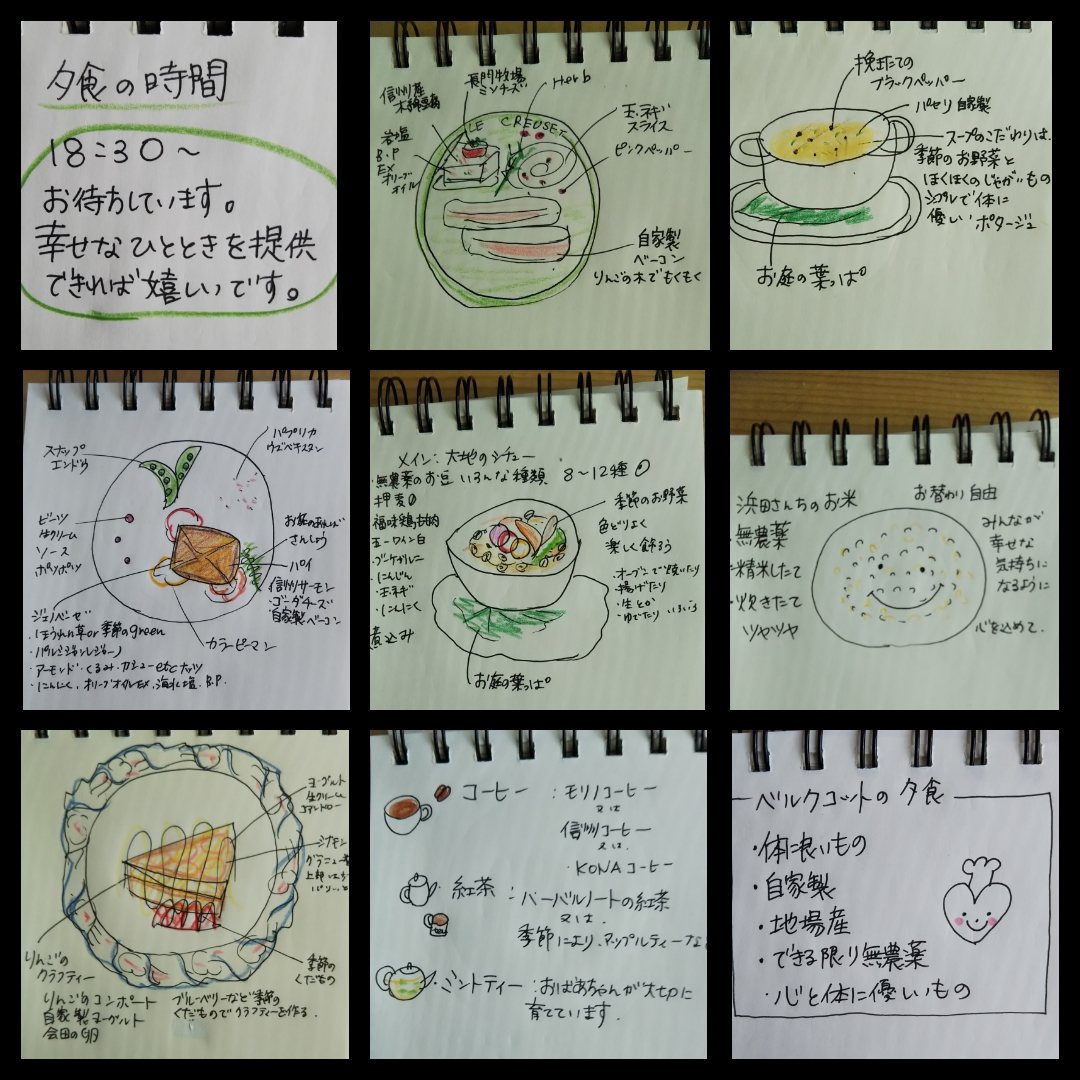 夕食の時間
18:30～
お待ちしています。
幸せなひとときを提供
できれば嬉しいです。
信州産
木綿豆腐
長門牧場
Herb
玉ネギ
スライス
ピンクペッパー
LE CREUSET
岩塩
B.P
EX
オリーブ
オイル
自家製
ベーコン
りんごの木でもくもく
挽きたての
ブラックペッパー
パセリ自家製
スープのこだわりは、
季節のお野菜と
ほくほくのじゃがいもの
シンプルで体に
優しいポタージュ
お庭の葉っぱ
スナップ
エンドウ
パプリカ
ウズベキスタン
ビーツ
生クリーム
ソース
ポツポツ
さんしょう
パイ
信州サーモン
・ゴーダチーズ
自家製ベーコン
カラーピーマン
ジェノベーゼ
・ほうれん草or季節のgreen
・アーモンド・くるみ・カシューetcナッツ
・にんにく、オリーブオイルEX、海水塩、B.P.
メイン:大地のシチュー
・無農薬のお豆 いろんな種類 8～12種
押麦
・にんじん
・玉ネギ
・にんにく
煮込み
季節のお野菜
色どりよく
楽しく飾ろう
・オーブンで焼いたり
・揚げたり
・生とか
・ゆでたり いろいろ
お庭の葉っぱ
浜田さんちのお米
お替わり自由
・無農薬
・精米したて
・炊きたて
ツヤツヤ
みんなが
幸せな
気持ちに
なるように
心を込めて.
ヨーグルト
生クリーム
コアントロー
シナモン
りんごの
クラフティー
季節の
くだもの
りんごのコンポート
自家製ヨーグルト
会田の卵
ブルーベリーなど季節の
くだものでクラフティーを作る.
コーヒー : モリノコーヒー
又は
信州コーヒー
又は.
・KONAコーヒー
紅茶 : ・バーバルノートの紅茶
又は.
季節により、アップルティーな
tea
・ミントティー : おばあちゃんが大切に
育てています.
ベルクコットの夕食
・体に良いもの
・自家製
・地場産
・できる限り無農薬
・心と体に優しいもの